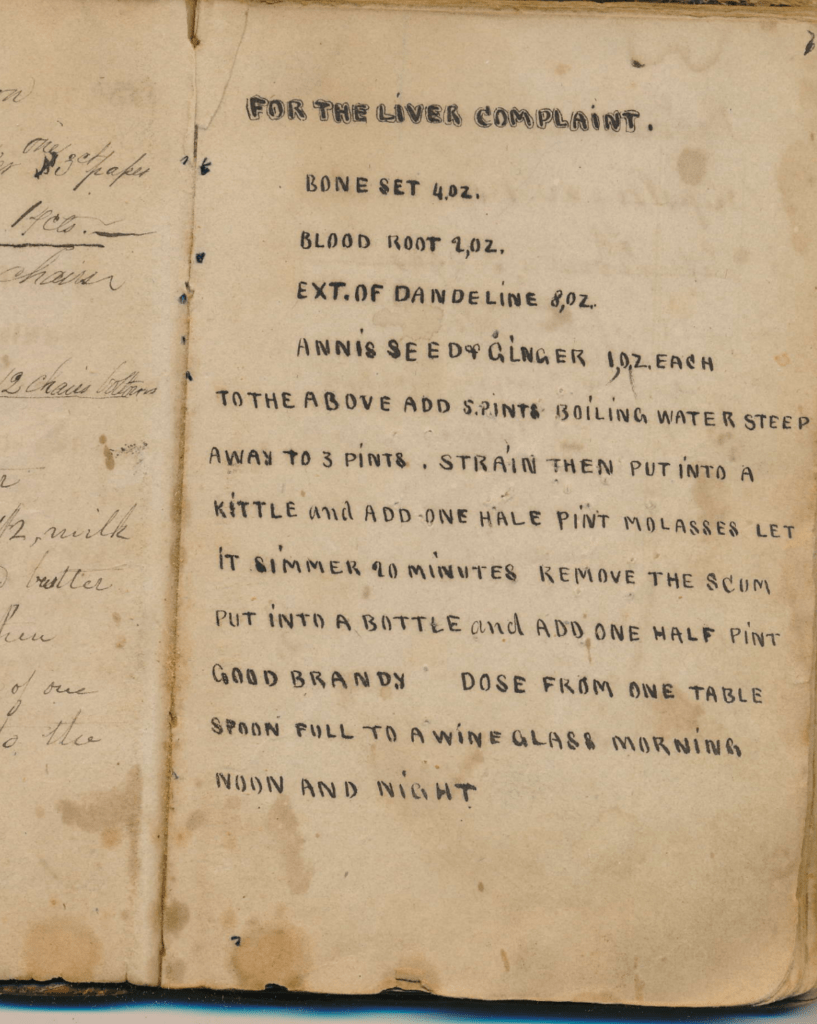 one
3ct paper
14cts.
chairs
12 chairs bottoms
milk
butter
of one
to the
FOR THE LIVER COMPLAINT.
BONE SET 4.OZ.
BLOOD ROOT 2,OZ.
EXT. OF DANDELINE 8,OZ.
ANNIS SEED & GINGER 1,OZ. EACH
TO THE ABOVE ADD 5.PINTS BOILING WATER STEEP
AWAY TO 3 PINTS. STRAIN THEN PUT INTO A
KITTLE and ADD ONE HALF PINT MOLASSES LET
IT SIMMER 20 MINUTES REMOVE THE SCUM
PUT INTO A BOTTLE and ADD ONE HALF PINT
GOOD BRANDY DOSE FROM ONE TABLE
SPOON FULL TO A WINE GLASS MORNING
NOON AND NIGHT